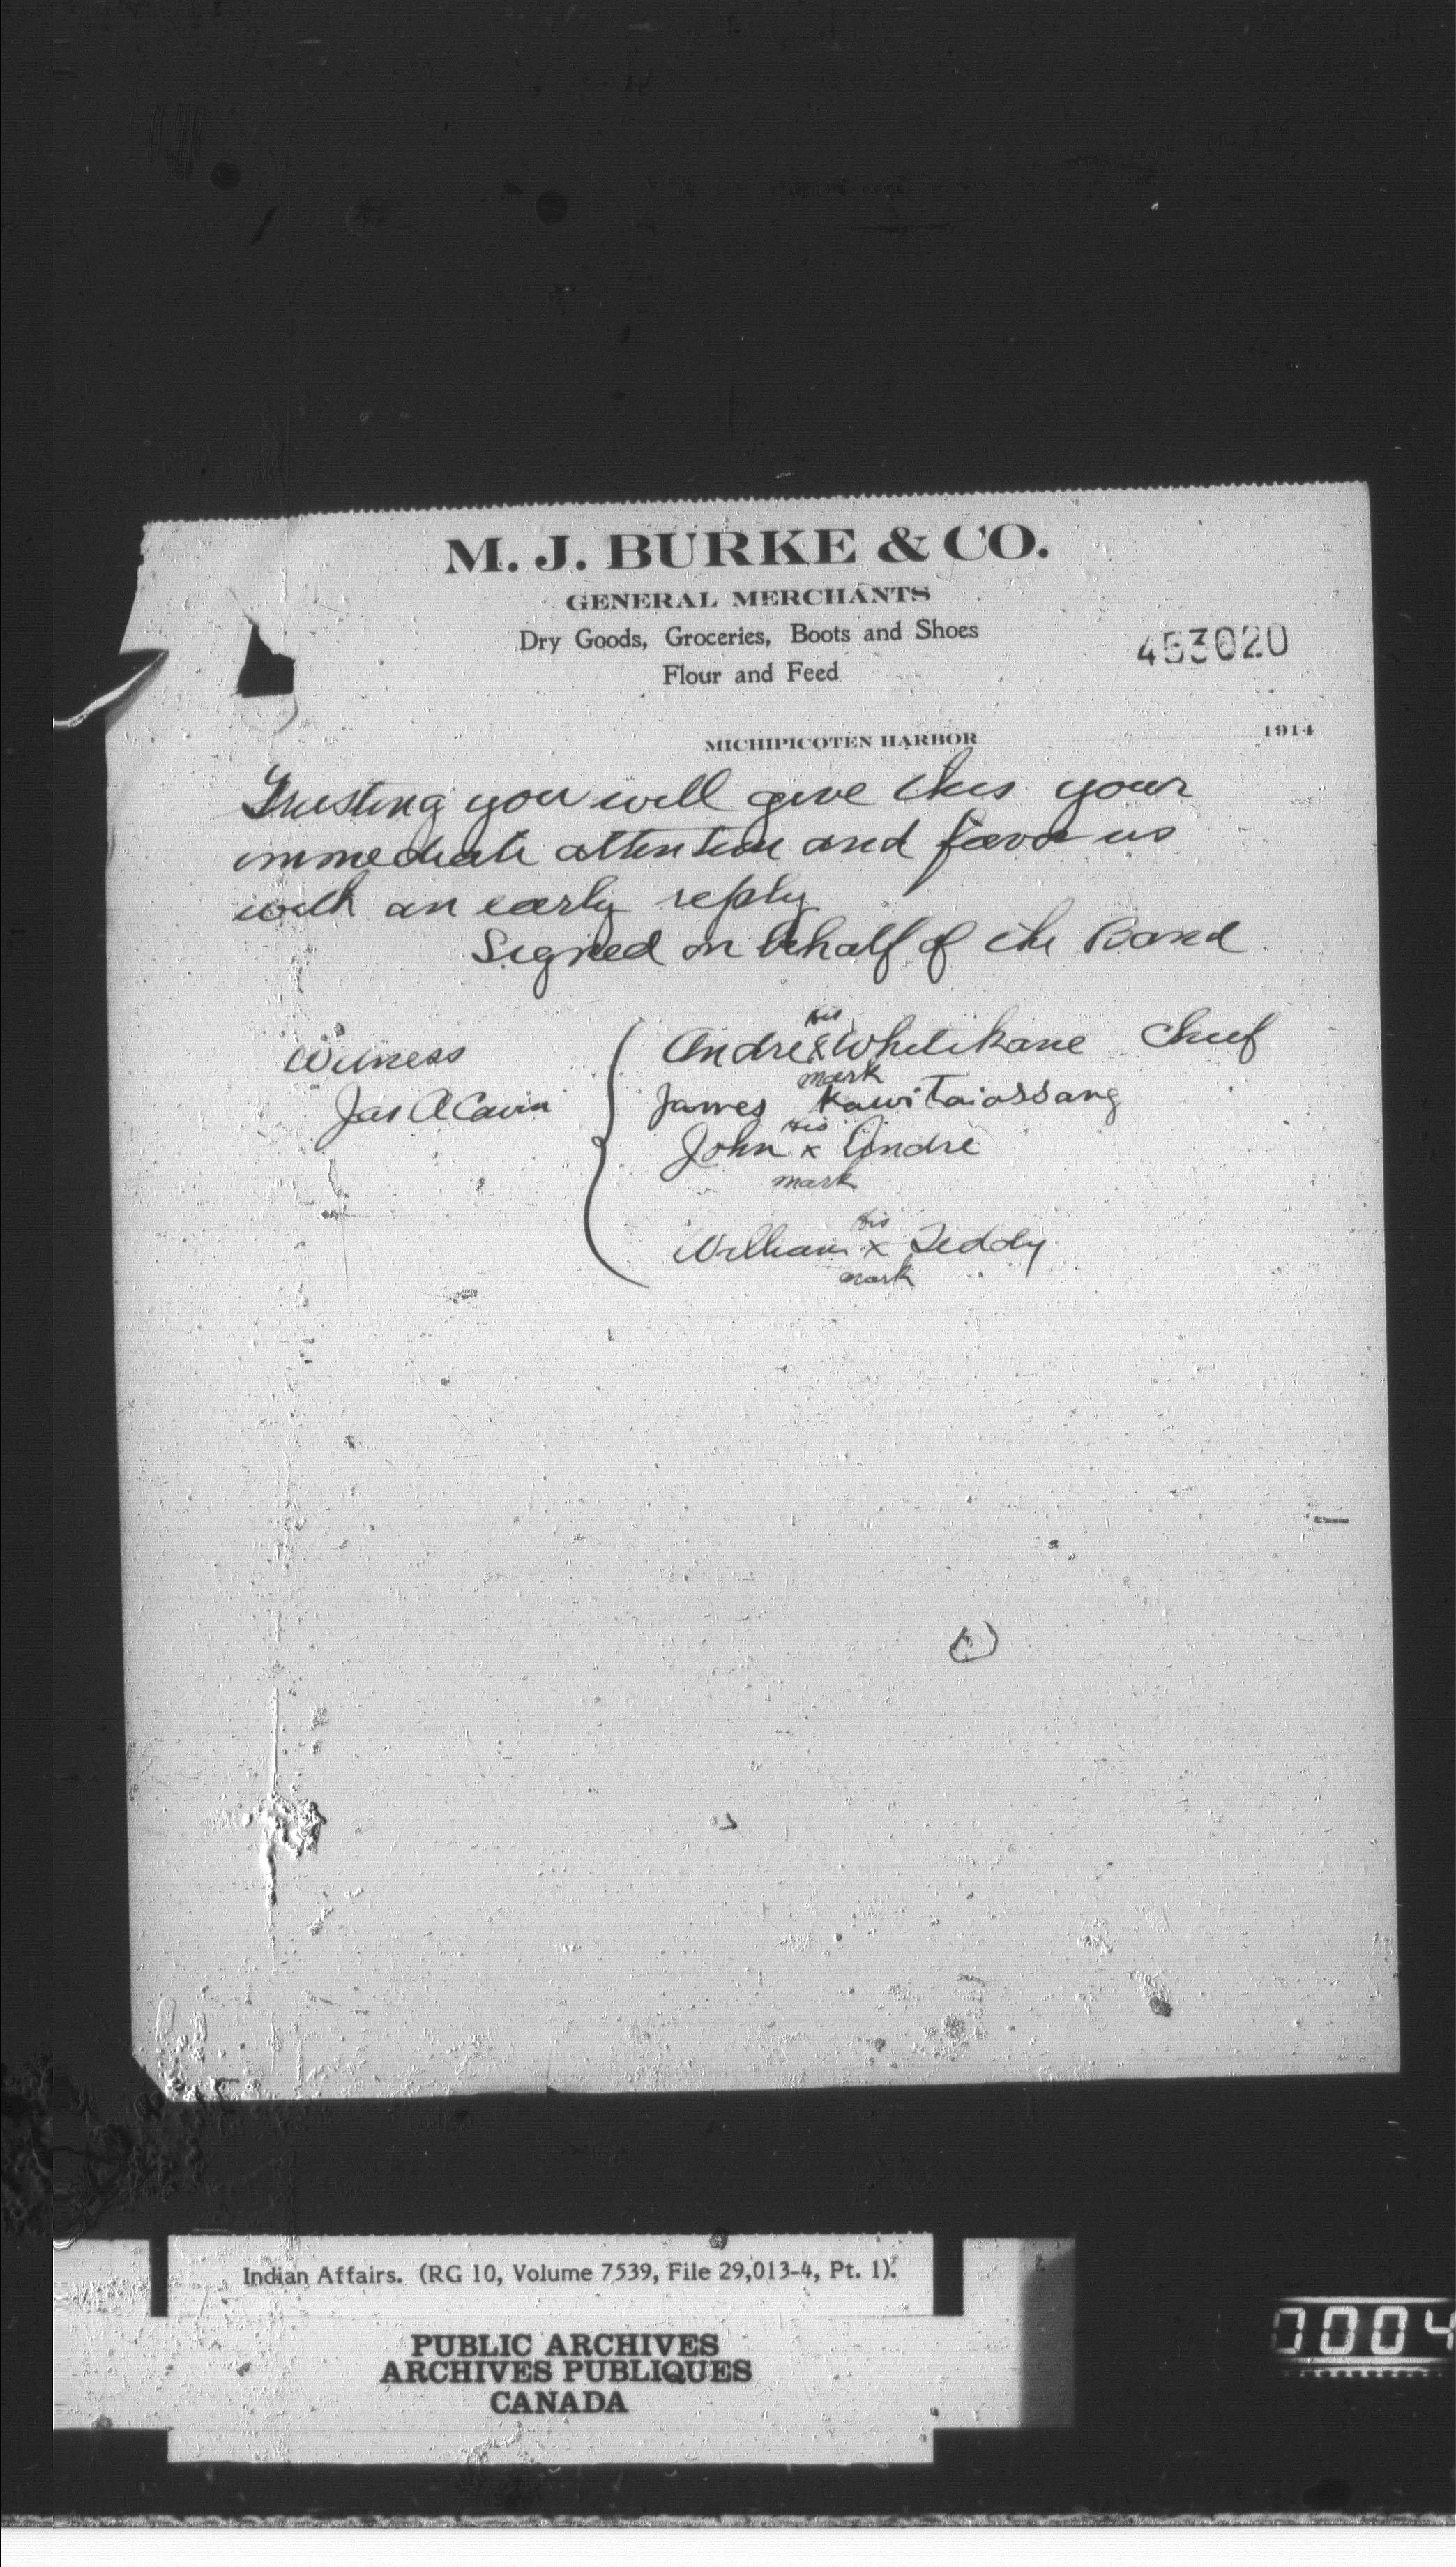 M. J. BURKE & CO.
GENERAL MERCHANTS
Dry Goods, Groceries, Boots and Shoes
Flour and Feed
453020
MICHIPICOTEN HARBOR 1914
Trusting you will give this your
immediate attention and favor us
with an early reply
Signed on behalf of the Band.
his
Witness Andre x Whitikane Chief
mark
Jas A Cavin James KawiTaiossang
his
John x Andre
mark
his
William x Teddy
mark
Indian Affairs. (RG 10, Volume 7539, File 29,013-4, Pt. 1).
PUBLIC ARCHIVES
ARCHIVES PUBLIQUES
CANADA
0004